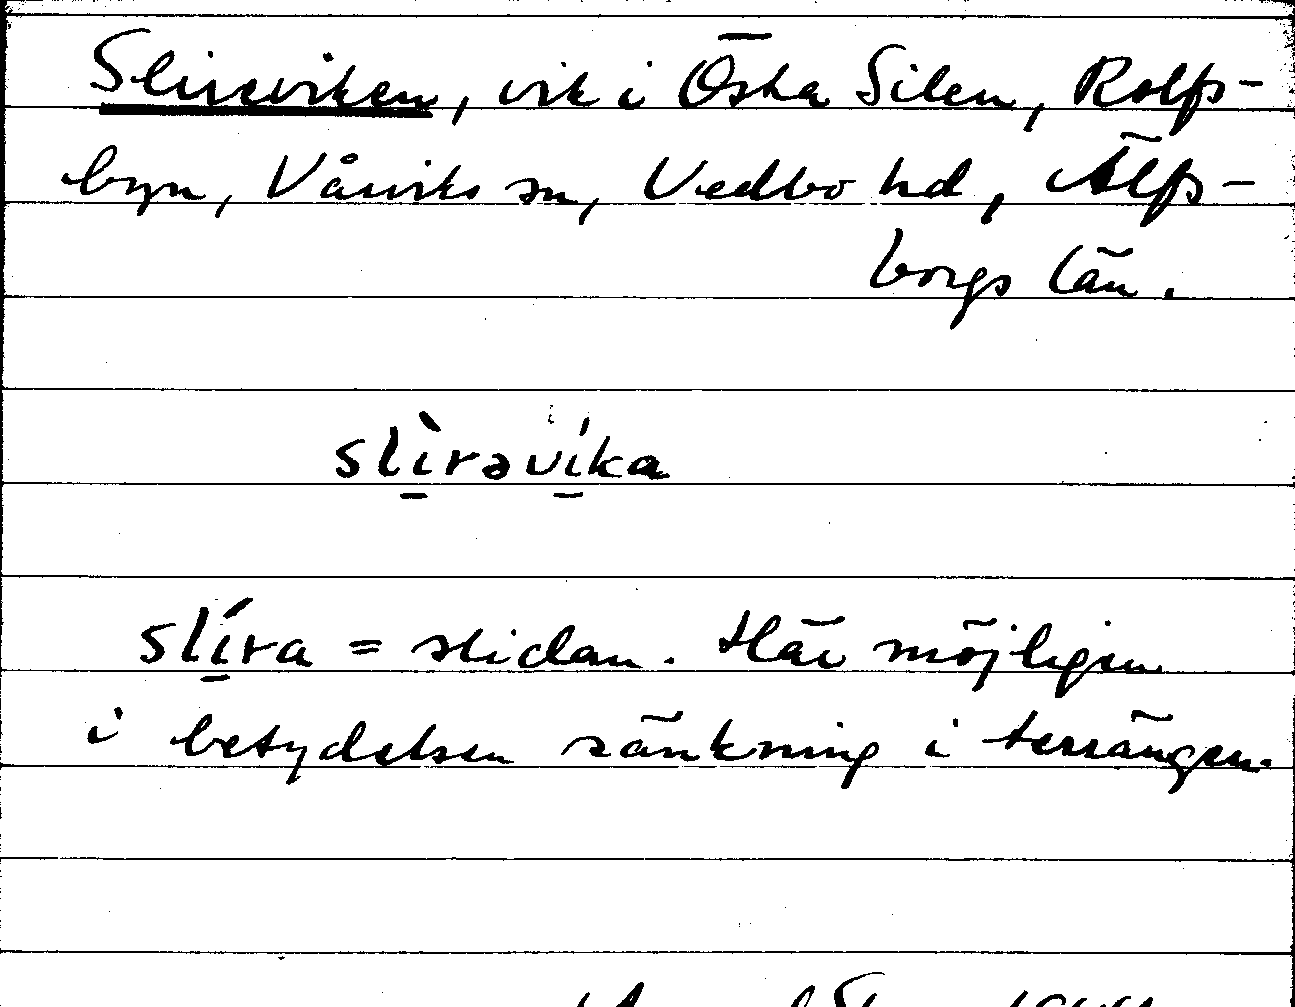 Slireviken, vik i Östra Silen, Rolfs-
byn, Vårviks sn, Vedbo hd, Älfs-
borgs län.
slìravíka
slíra = slidan. Här möjligen
i betydelsen sänkning i terrängen.